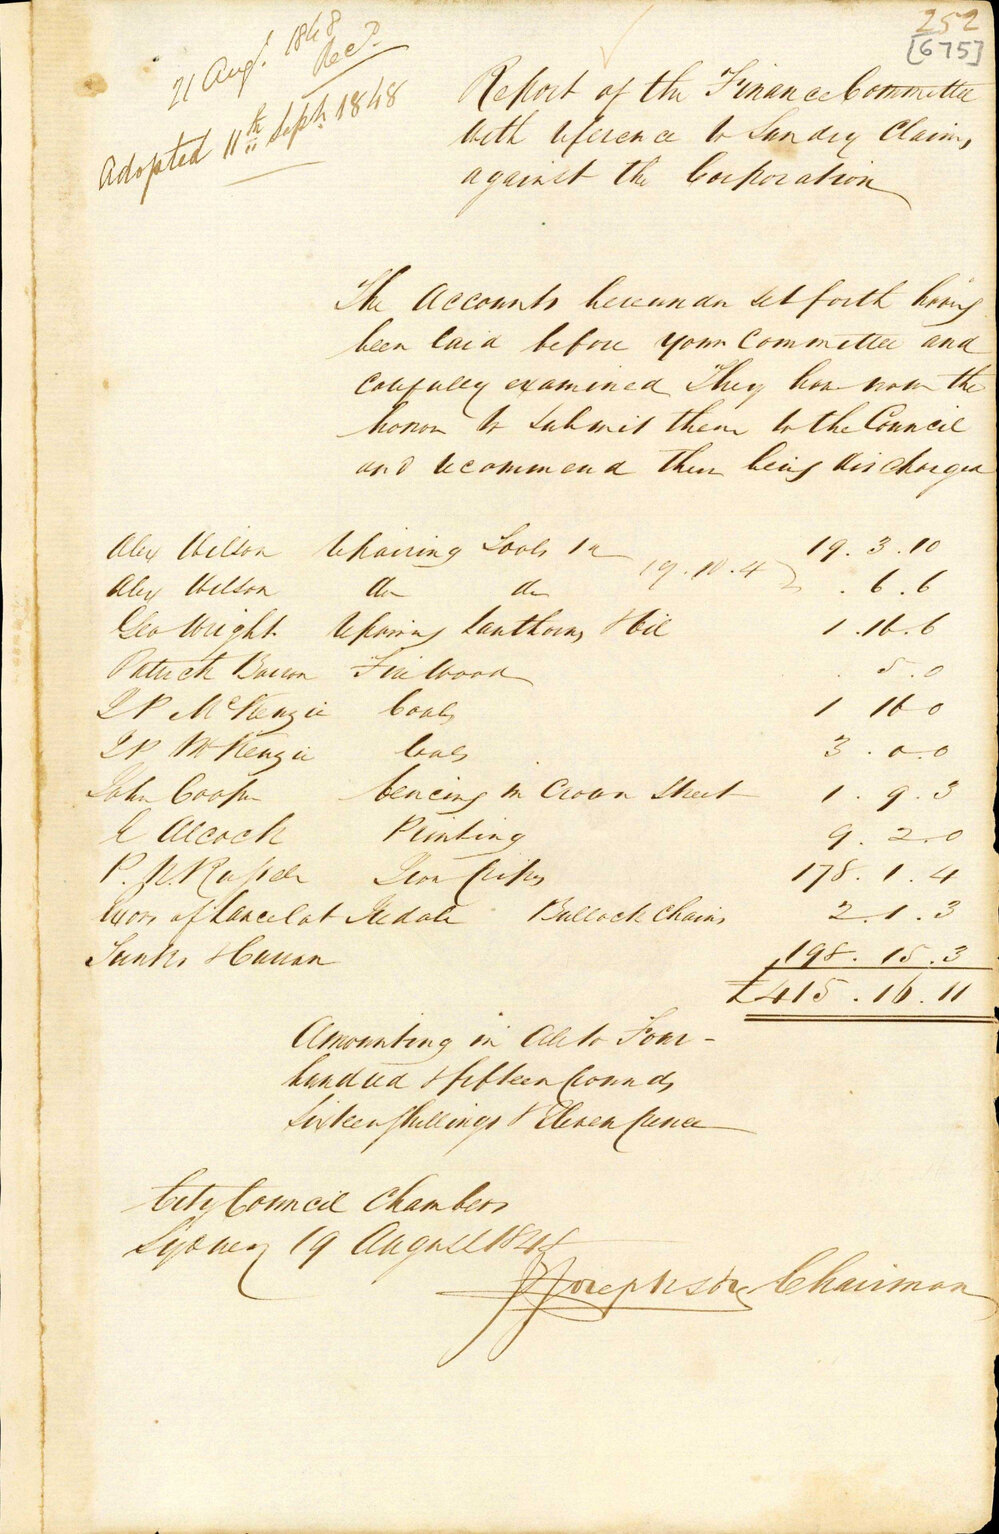 252
[675]
21 Augt. 1848
Recd.
Adopted 11th Septr. 1848
Report of the Finance Committee
with reference to Sundry Claims
against the Corporation
The Accounts hereunder set forth having
been laid before your Committee and
carefully examined They have now the
honor to submit them to the Council
and recommend their being discharged
Alex Wilson repairing Tools &c 19.3.10
Alex Wilson do do 19.10.4 .6.6
Geo Wright repairing Lanthorns & Oil 1.16.6
Patrick Firewood .5.0
McKenzie Coals 1 16 0
McKenzie Coals 3.0.0
John Cooper fencing in Crown Street 1.9.3
E Alcock Printing 9.2.0
P. N. Russell Iron Pipes 178.1.4
Exors of Lancelot Iredale Bullock Chains 2.1.3
198.15.3
£415.16.11
Amounting in all to Four-
hundred & fifteen pounds
Sixteen shillings & Eleven pence
City Council Chambers
Sydney 19 August 1848
J Josephson Chairman